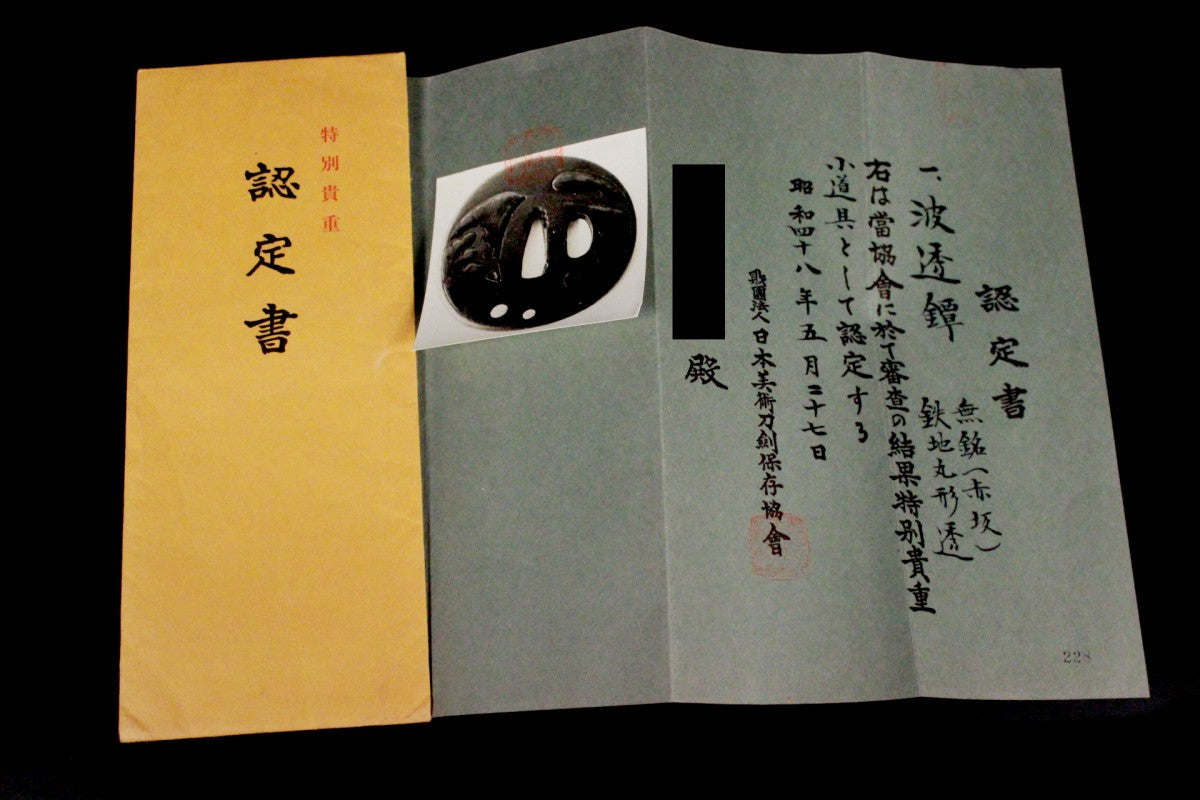 特別貴重
認定書
認定書
一、波透鐔 無銘(赤坂)
鉄地丸形透
右は當協會に於て審査の結果特別貴重
小道具として認定する
昭和四十八年五月二十七日
財團法人日本美術刀劍保存協會
殿
228